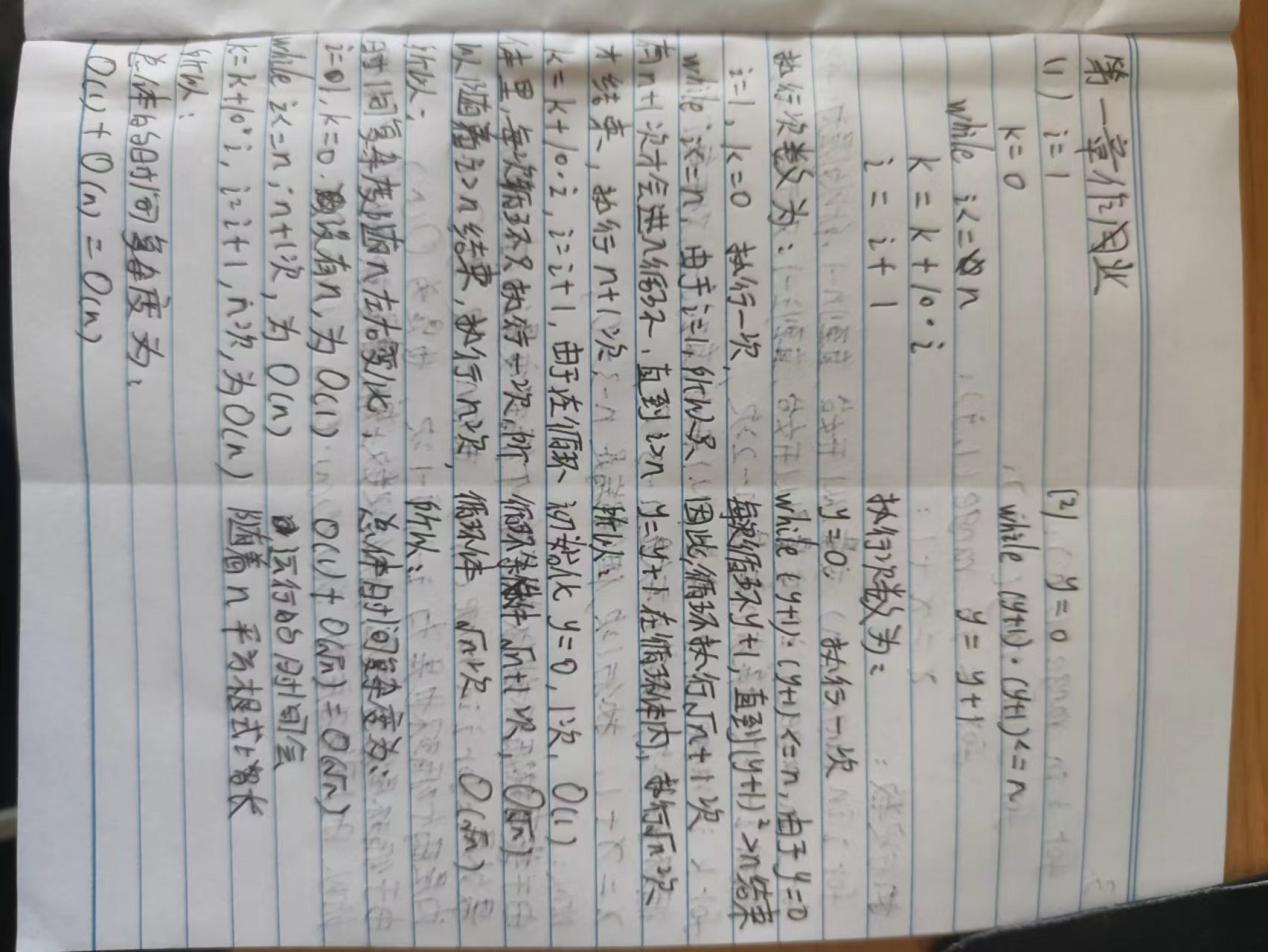 第一章作业
(1) i=1
k=0
while i<=n
k = k+10·i
i = i+1
执行次数为:
i=1, k=0 执行一次
while i<=n, 由于i=1, 所以只
有n+1次才会进入循环, 直到i>n
才结束, 执行n+1次
k=k+10·i, i=i+1, 由于在循环
体里, 每次循环只执行一次, 所
以随着i>n结束, 执行n次
所以:
时间复杂度随n左右变化
i=1, k=0. 没有n, 为O(1)
while i<=n: n+1次, 为O(n)
k=k+10·i, i=i+1, n次, 为O(n)
所以:
总体的时间复杂度为:
O(1)+O(n)=O(n)
(2) y=0
while (y+1)·(y+1)<=n
y=y+1
执行次数为:
y=0: 执行一次
while (y+1)·(y+1)<=n, 由于y=0
每次循环y+1, 直到(y+1)²>n结束
因此, 循环执行√n+1次
y=y+1 在循环体内, 执行√n次
所以:
初始化 y=0, 1次, O(1)
循环条件 √n+1次, O(√n)
循环体 √n次 O(√n)
所以:
总体时间复杂度为:
O(1)+O(√n)=O(√n)
运行的时间会
随着n平方根式增长